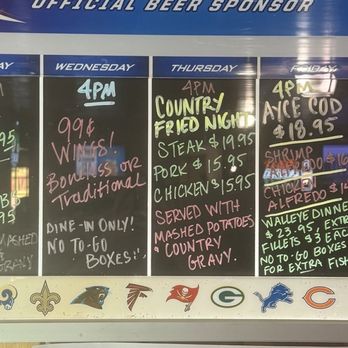 OFFICIAL BEER SPONSOR
AY
WEDNESDAY
THURSDAY
FRIDAY
95
95
MASHED
GRAVY
4PM
99¢
WINGS!
BONELESS OR
TRADITIONAL
DINE-IN ONLY!
NO TO-GO
BOXES
4PM
COUNTRY
FRIED NIGHT
STEAK $19.95
PORK $15.95
CHICKEN $15.95
SERVED WITH
MASHED POTATOES
& COUNTRY
GRAVY.
4PM
AYCE COD
$18.95
SHRIMP
$16
CHICKEN
ALFREDO $1
WALLEYE DINNE
$23.95, EXTR
FILLETS $3 EAC
NO TO-GO BOXES
FOR EXTRA FISH